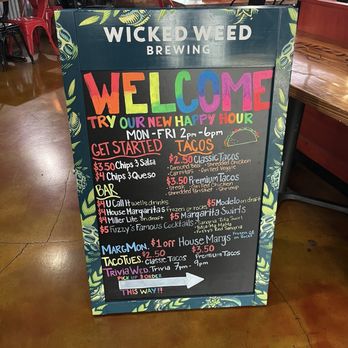 WICKED WEED
BREWING
WELCOME
TRY OUR NEW HAPPY HOUR
MON-FRI 2pm-6pm
GET STARTED
$3.50 Chips & Salsa
$4 Chips & Queso
TACOS
$2.50 Classic Tacos
-Ground Beef -Shredded Chicken
$3.50 Premium Tacos
-Steak -Grilled Chicken
BAR
$4 U Call It
$4 House Margaritas Frozen or rocks
$4 Miller Lite on draft
$5 Fuzzy's Famous Cocktails
$5 Modelo on draft
$5 Margarita Swirls
MARG MON. $1 off House Margs
TACO TUES. $2.50 Classic Tacos $3.50 Premium Tacos
TRIVIA WED. Trivia 7pm-9pm
PICK UP & ORDER
THIS WAY!!